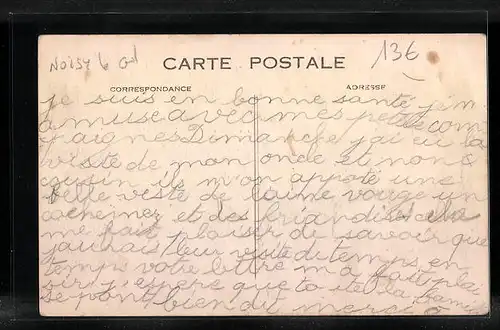 NOISY le Gd
13€
CARTE POSTALE
CORRESPONDANCE
ADRESSE
je suis en bonne santé j'em
amuse avec mes petite com
paignes Dimanche j'ai eu la
viste de mon oncle et mon
cousin ils m'on apporté une
belle veste de laine rouge un
cachenez et des friandises
me fait plaisir de savoir que
j'aurais leur visite de temps en
temps votre lettre m'a fait plai
sir j'espere que toute la fami
se port bien